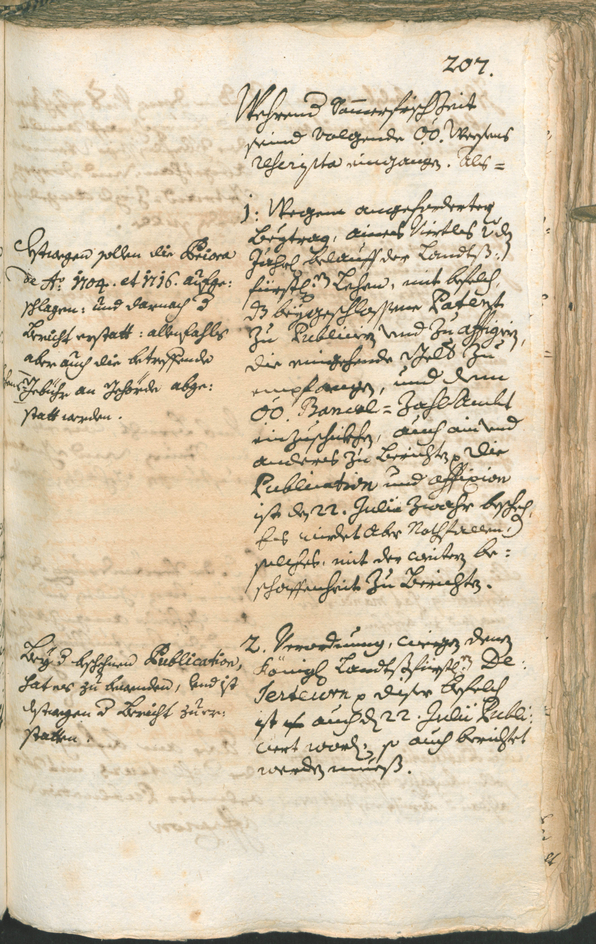 207.
Wehrend Sommerfrisch Zeit
seind volgende OO. Wesens
Rescripta eingangen. Als=
1: Wegen angeforderten
Beytrag, aines Virtles v. dem
Jahrs belauf der Landtß:
fürstl:n Lehen, mit befelch,
dz beygeschlossene Patent
zu Publiciern und zu affigiern,
die eingehende Gelt zu
empfangen, und dem
OO. Bancal= Zahl Ambt
einzuschikhen, auch ain und
anderes zu berichten. Die
Publication und affixion
ist den 22. Julii zwahr beschehen,
Es wirdet aber
solches, mit der be=
schaffenheit zu berichten.
Estwegen sollen die Priora
de A:o 1704. et 1716. aufge=
schlagen: und darnach d
Bericht erstatt: allenfahls
aber auch die betreffende
Gebühr an Gehörde abge=
statt werden.
2. Verordnung, wegen denen
Königl Landtßfürstl:n De=
serteurn. Diser befelch
ist auch den 22. Julii Publi=
ciert worden, so auch berichtet
werden mueß.
Bey d beschehnen Publication,
hat es zu bewenden, und ist
destwegen d Bericht zu er=
statten.